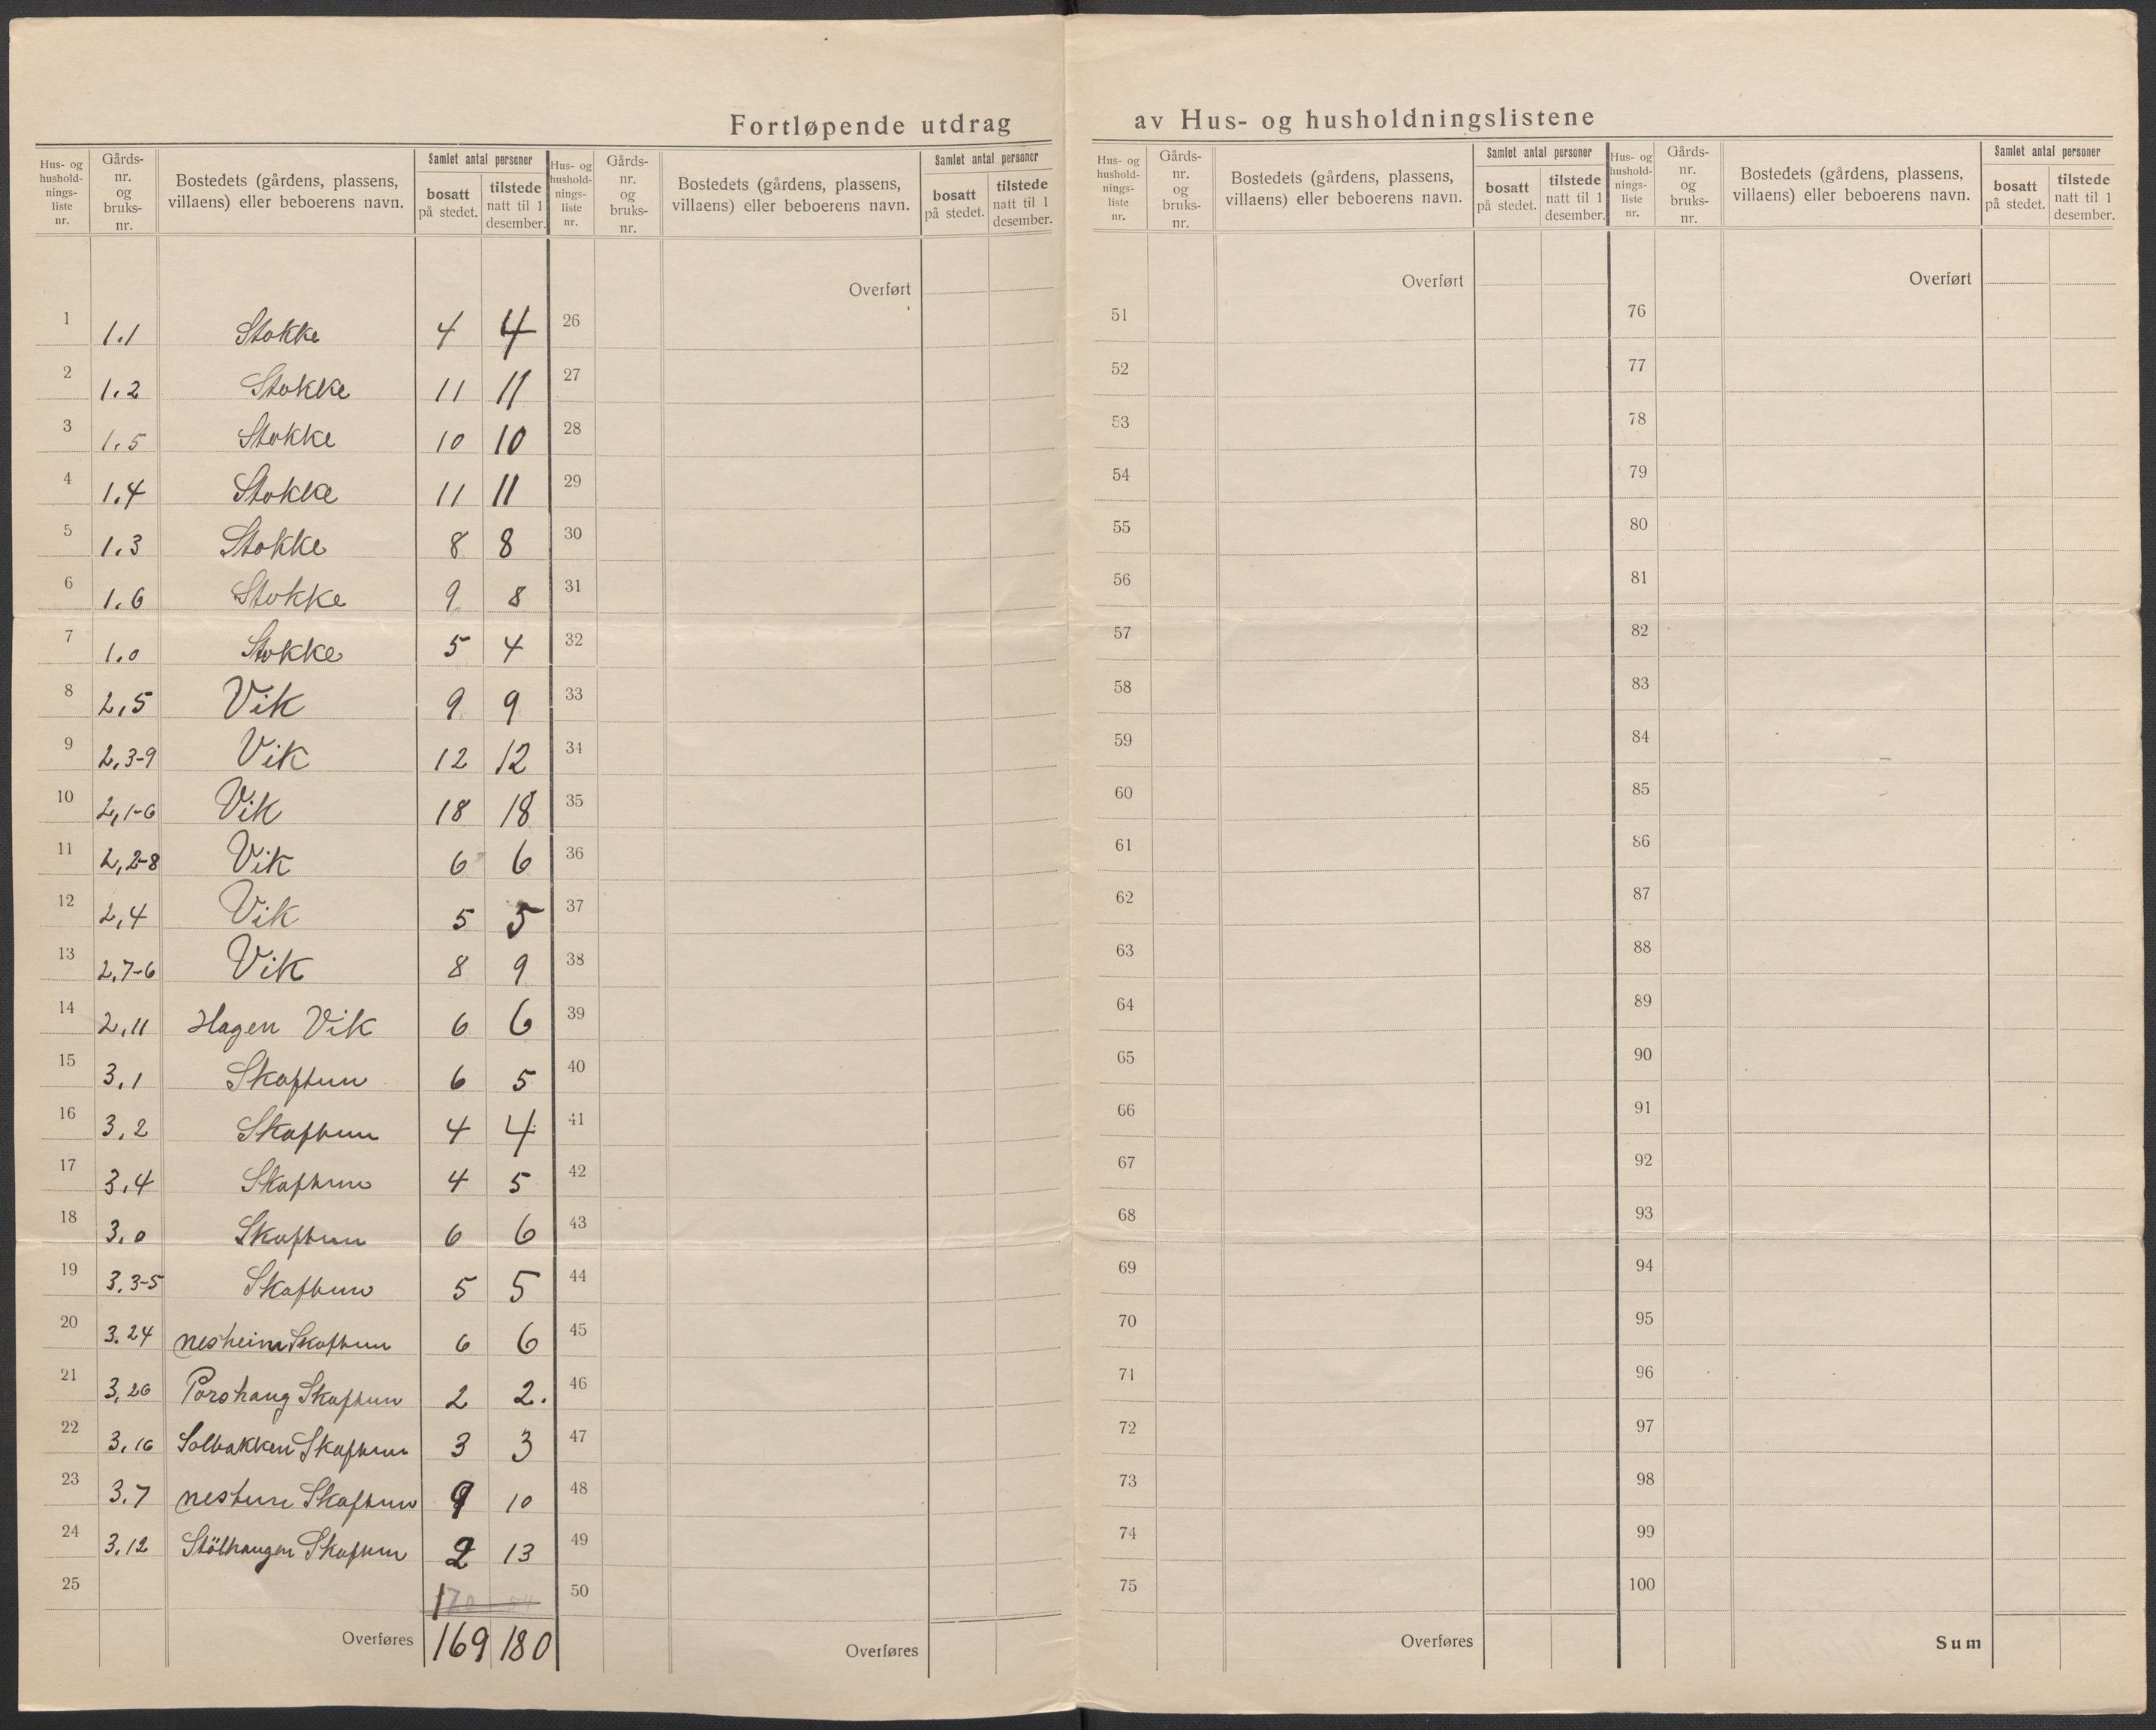 Fortløpende utdrag av Hus- og husholdningslistene
Hus- og hushold-nings-liste nr. Gårds-nr. og bruks-nr. Bostedets (gårdens, plassens, villaens) eller beboerens navn. Samlet antal personer bosatt på stedet. tilstede natt til 1 desember.
1 1.1 Stokke 4 4
2 1.2 Stokke 11 11
3 1.5 Stokke 10 10
4 1.4 Stokke 11 11
5 1.3 Stokke 8 8
6 1.6 Stokke 9 8
7 1.0 Stokke 5 4
8 2,5 Vik 9 9
9 2,3-9 Vik 12 12
10 2,1-6 Vik 18 18
11 2,2-8 Vik 6 6
12 2,4 Vik 5 5
13 2,7-6 Vik 8 9
14 2,11 Hagen Vik 6 6
15 3,1 Skaftun 6 5
16 3,2 Skaftun 4 4
17 3,4 Skaftun 4 5
18 3,0 Skaftun 6 6
19 3,3-5 Skaftun 5 5
20 3.24 Nesheim Skaftun 6 6
21 3,26 Porshaug Skaftun 2 2.
22 3,16 Solbakken Skaftun 3 3
23 3.7 Nestun Skaftun 9 10
24 3.12 Stölhaugen Skaftun 2 13
25
Overføres 169 180
Hus- og hushold-nings-liste nr. Gårds-nr. og bruks-nr. Bostedets (gårdens, plassens, villaens) eller beboerens navn. Samlet antal personer bosatt på stedet. tilstede natt til 1 desember.
Overført
26
27
28
29
30
31
32
33
34
35
36
37
38
39
40
41
42
43
44
45
46
47
48
49
50
Overføres
Hus- og hushold-nings-liste nr. Gårds-nr. og bruks-nr. Bostedets (gårdens, plassens, villaens) eller beboerens navn. Samlet antal personer bosatt på stedet. tilstede natt til 1 desember.
Overført
51
52
53
54
55
56
57
58
59
60
61
62
63
64
65
66
67
68
69
70
71
72
73
74
75
Overføres
Hus- og hushold-nings-liste nr. Gårds-nr. og bruks-nr. Bostedets (gårdens, plassens, villaens) eller beboerens navn. Samlet antal personer bosatt på stedet. tilstede natt til 1 desember.
Overført
76
77
78
79
80
81
82
83
84
85
86
87
88
89
90
91
92
93
94
95
96
97
98
99
100
Sum